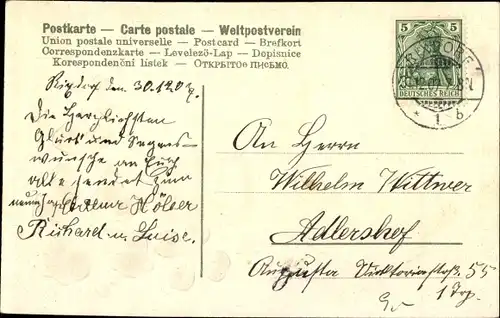 Postkarte — Carte postale — Weltpostverein
Union postale universelle — Postcard — Brefkort
Correspondenzkarte — Levelező-Lap — Dopisnice
Korespondenční lístek — ОТКРЫТОЕ ПИСЬМО.
5 5
DEUTSCHES REICH
* 1 b
Rixdorf den 30.12.07.
Die Herzlichsten
Glück und Segens-
wünsche an Euch
alle sendet zum
neuen
Richard u. Luise.
An Herrn
Wilhelm Wittwer
Adlershof
Augusta Viktoriastraß. 55
1 Trp.